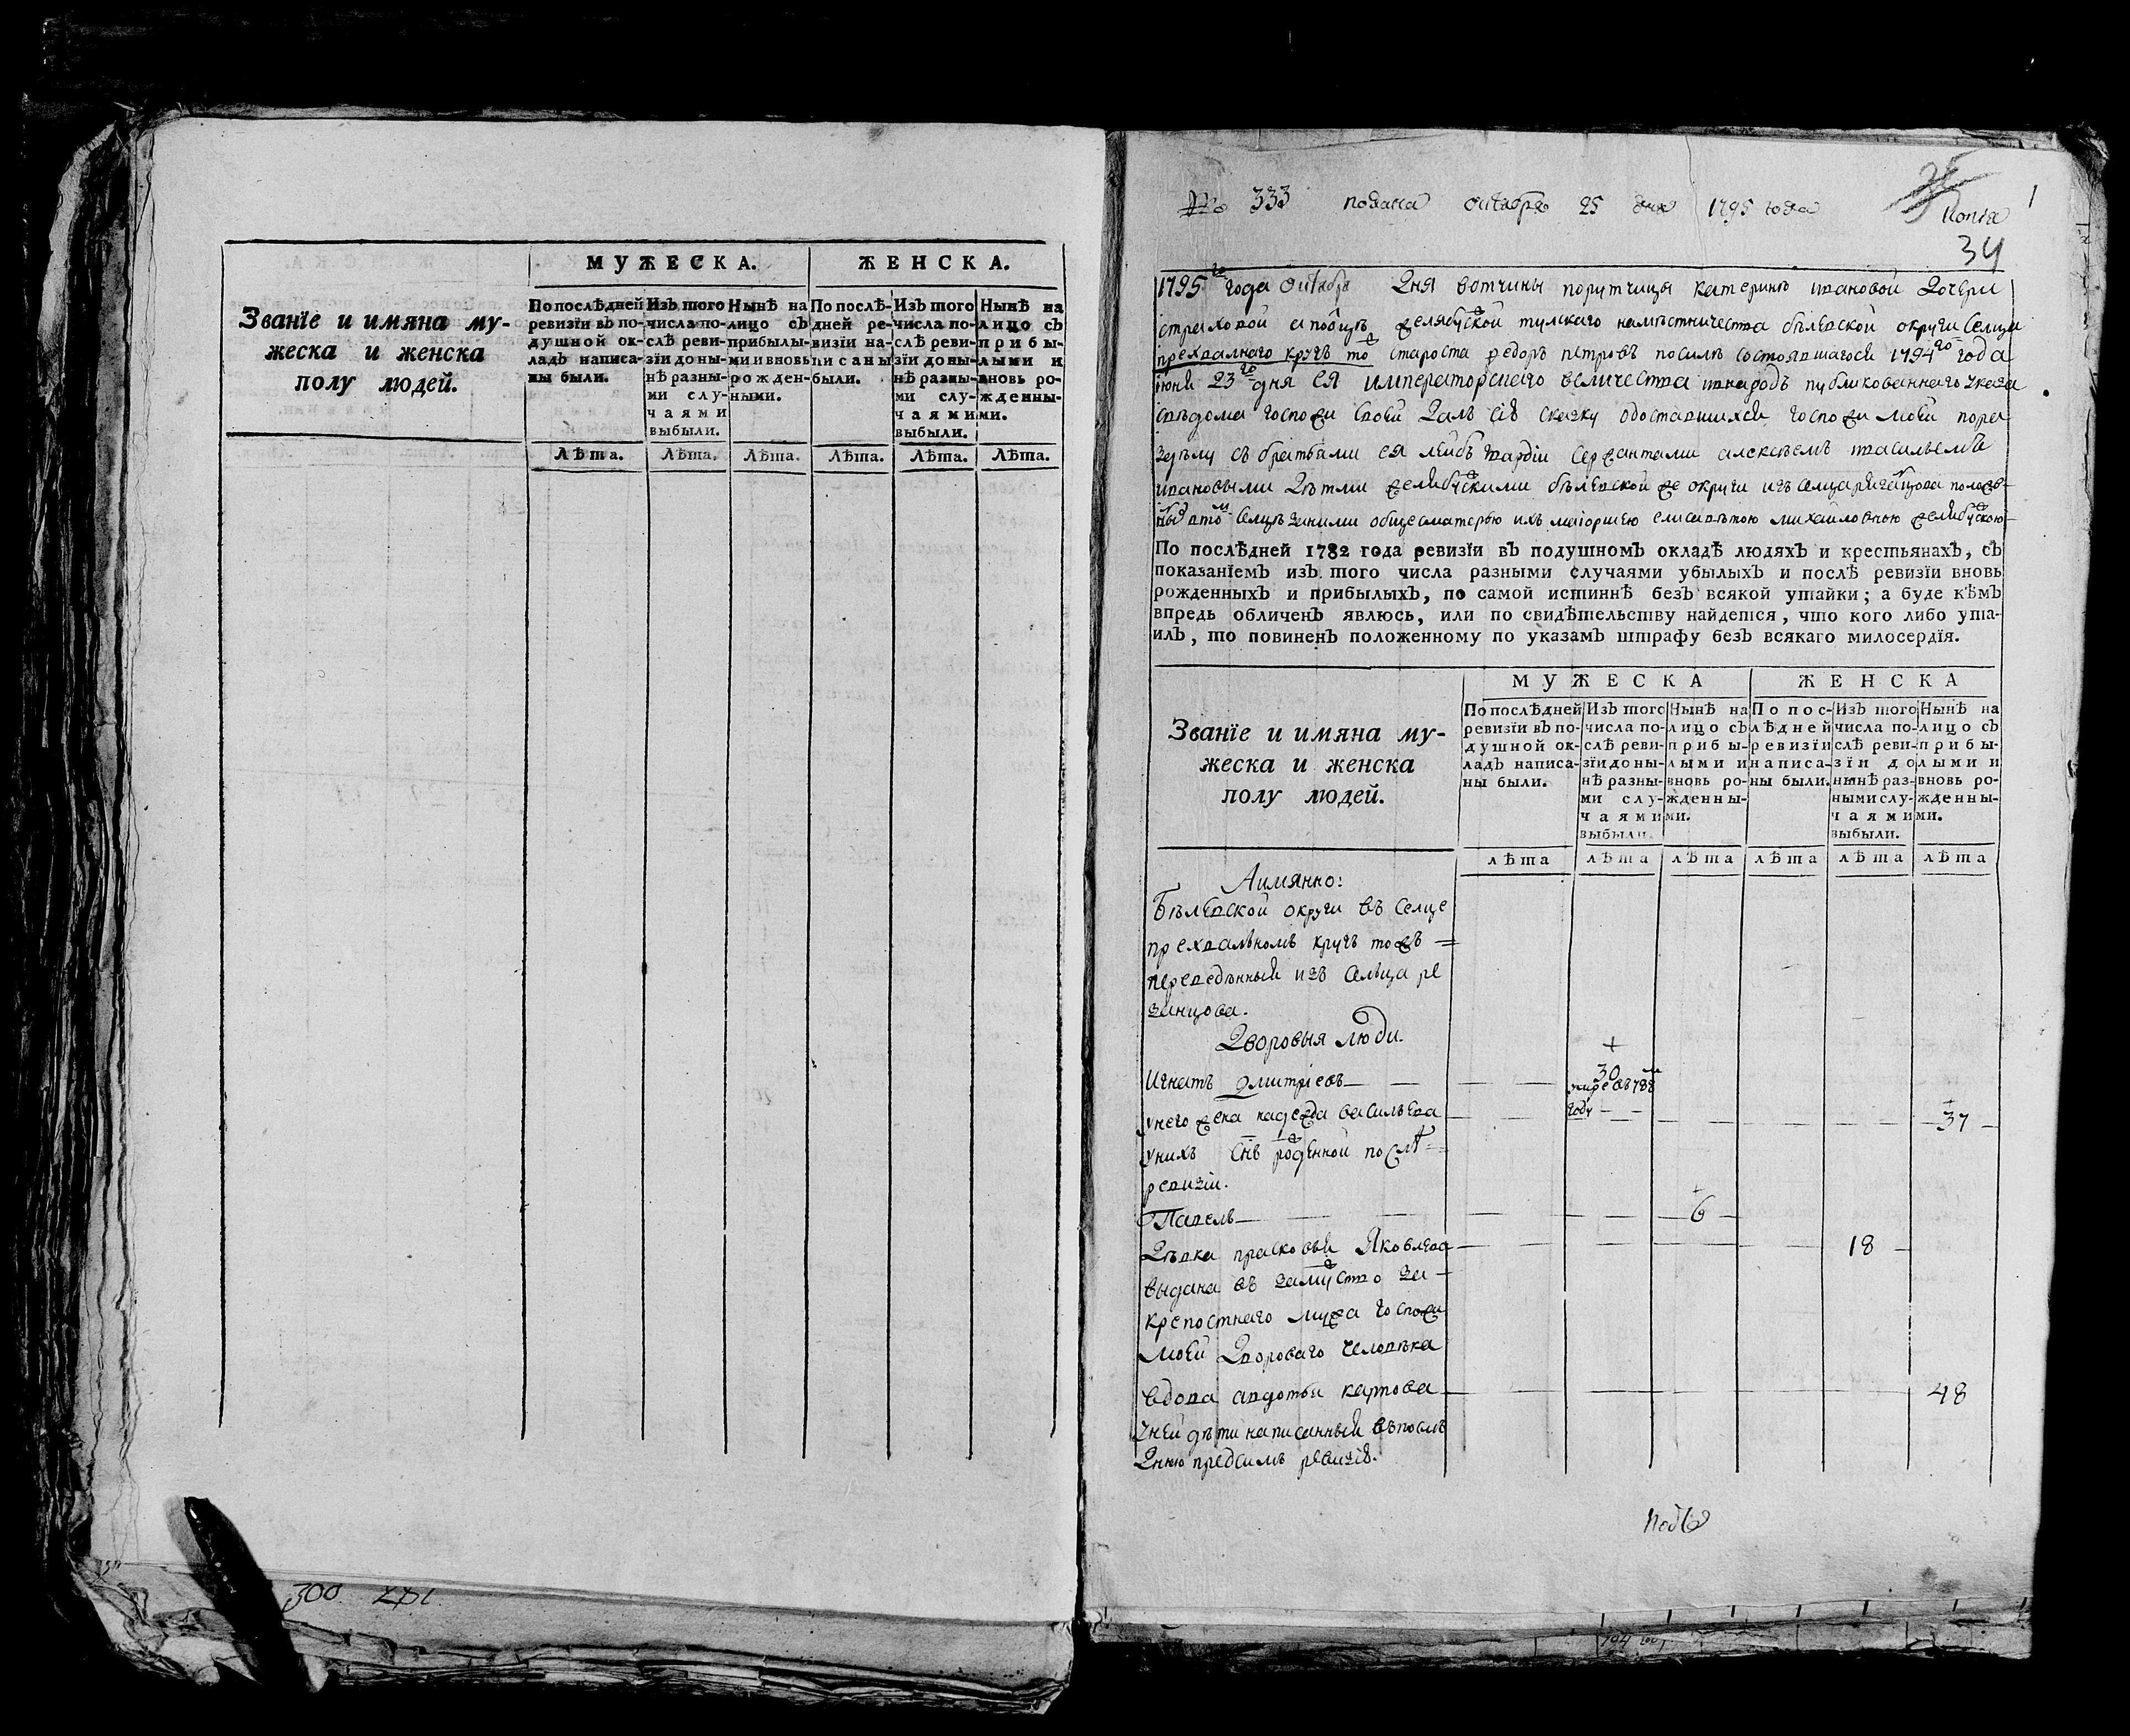 МУЖЕСКА.
ЖЕНСКА.
Званїе и имяна му-
жеска и женска
полу людей.
По послѣдней
ревизїи въ по-
душной ок-
ладъ написа-
ны были.
Изъ того
числа по-
слѣ реви-
зїи доны-
нѣ разны-
ми слу-
чаями
выбыли.
Нынѣ на
лицо съ
прибылы-
ми и вновь
рожден-
ными.
По послѣ-
дней ре-
визїи на-
писаны
были.
Изъ того
числа по-
слѣ реви-
зїи доны-
нѣ разны-
ми слу-
чаями
выбыли.
Нынѣ на
лицо съ
прибы-
лыми и
вновь ро-
жденны-
ми.
Лѣта. Лѣта. Лѣта. Лѣта. Лѣта. Лѣта.
300
№ 333 подана октября 25 дня 1795 года
Копия
1
34
1795го года октября дня вотчины порутчицы катерины ивановой дочери
страховой желябуской тулского наместничества бѣлевской округи селца
прехвалнаго кручь то староста федоръ петровъ посилѣ состоявшагося 1794го года
июня 23го дня ея императорскаго величества внародъ публикованнаго указа
свѣдома госпожи своей далъ сию скаску одоставшихся госпожи моей пора
зделу съ братьями ея лейбъ гвардіи сержантами алексѣемъ васильемъ
ивановыми дѣтми желябускими бѣлевской же округи изъ селца
селцѣ заними обще сматерью ихъ маіоршею елисаветою михайловною желябускою
По послѣдней 1782 года ревизїи въ подушномъ окладѣ людяхъ и крестьянахъ, съ
показанїемъ изъ того числа разными случаями убылыхъ и послѣ ревизїи вновь
рожденныхъ и прибылыхъ, по самой истиннѣ безъ всякой утайки; а буде кѣмъ
впредь обличенъ явлюсь, или по свидѣтельству найдется, что кого либо ута-
илъ, то повиненъ положенному по указамъ штрафу безъ всякаго милосердїя.
МУЖЕСКА
ЖЕНСКА
Званїе и имяна му-
жеска и женска
полу людей.
По послѣдней
ревизїи въ по-
душной ок-
ладъ написа-
ны были.
Изъ того
числа по-
слѣ реви-
зїи доны-
нѣ разны-
ми слу-
чаями
выбыли.
Нынѣ на
лицо съ
прибы-
лыми и
вновь ро-
жденны-
ми.
По пос-
лѣдней
ревизїи
написа-
ны были.
Изъ того
числа по-
слѣ реви-
зїи до
нынѣ раз-
ными слу-
чаями
выбыли.
Нынѣ на
лицо съ
прибы-
лыми и
вновь ро-
жденны-
ми.
лѣта лѣта лѣта лѣта лѣта лѣта
Аимянно:
Бѣлевской округи въ селце
прехвальномъ кручь тожъ
переведенныя изъ сельца ре
занцова.
Дворовыя люди.
Игнатъ дмитріевъ 30
умре въ 788м
году
унего жена надежда васильева 37
унихъ снъ рожденной послѣ
ревизіи.
Павелъ 6
Дѣвка прасковья Яковлева 18
выдана въ замуство за
крепостнаго мужа госпожи
моей дворового человека
вдова авдотья карпова 48
уней дѣти написанныя въ послѣ
днюю предсимъ ревизію.